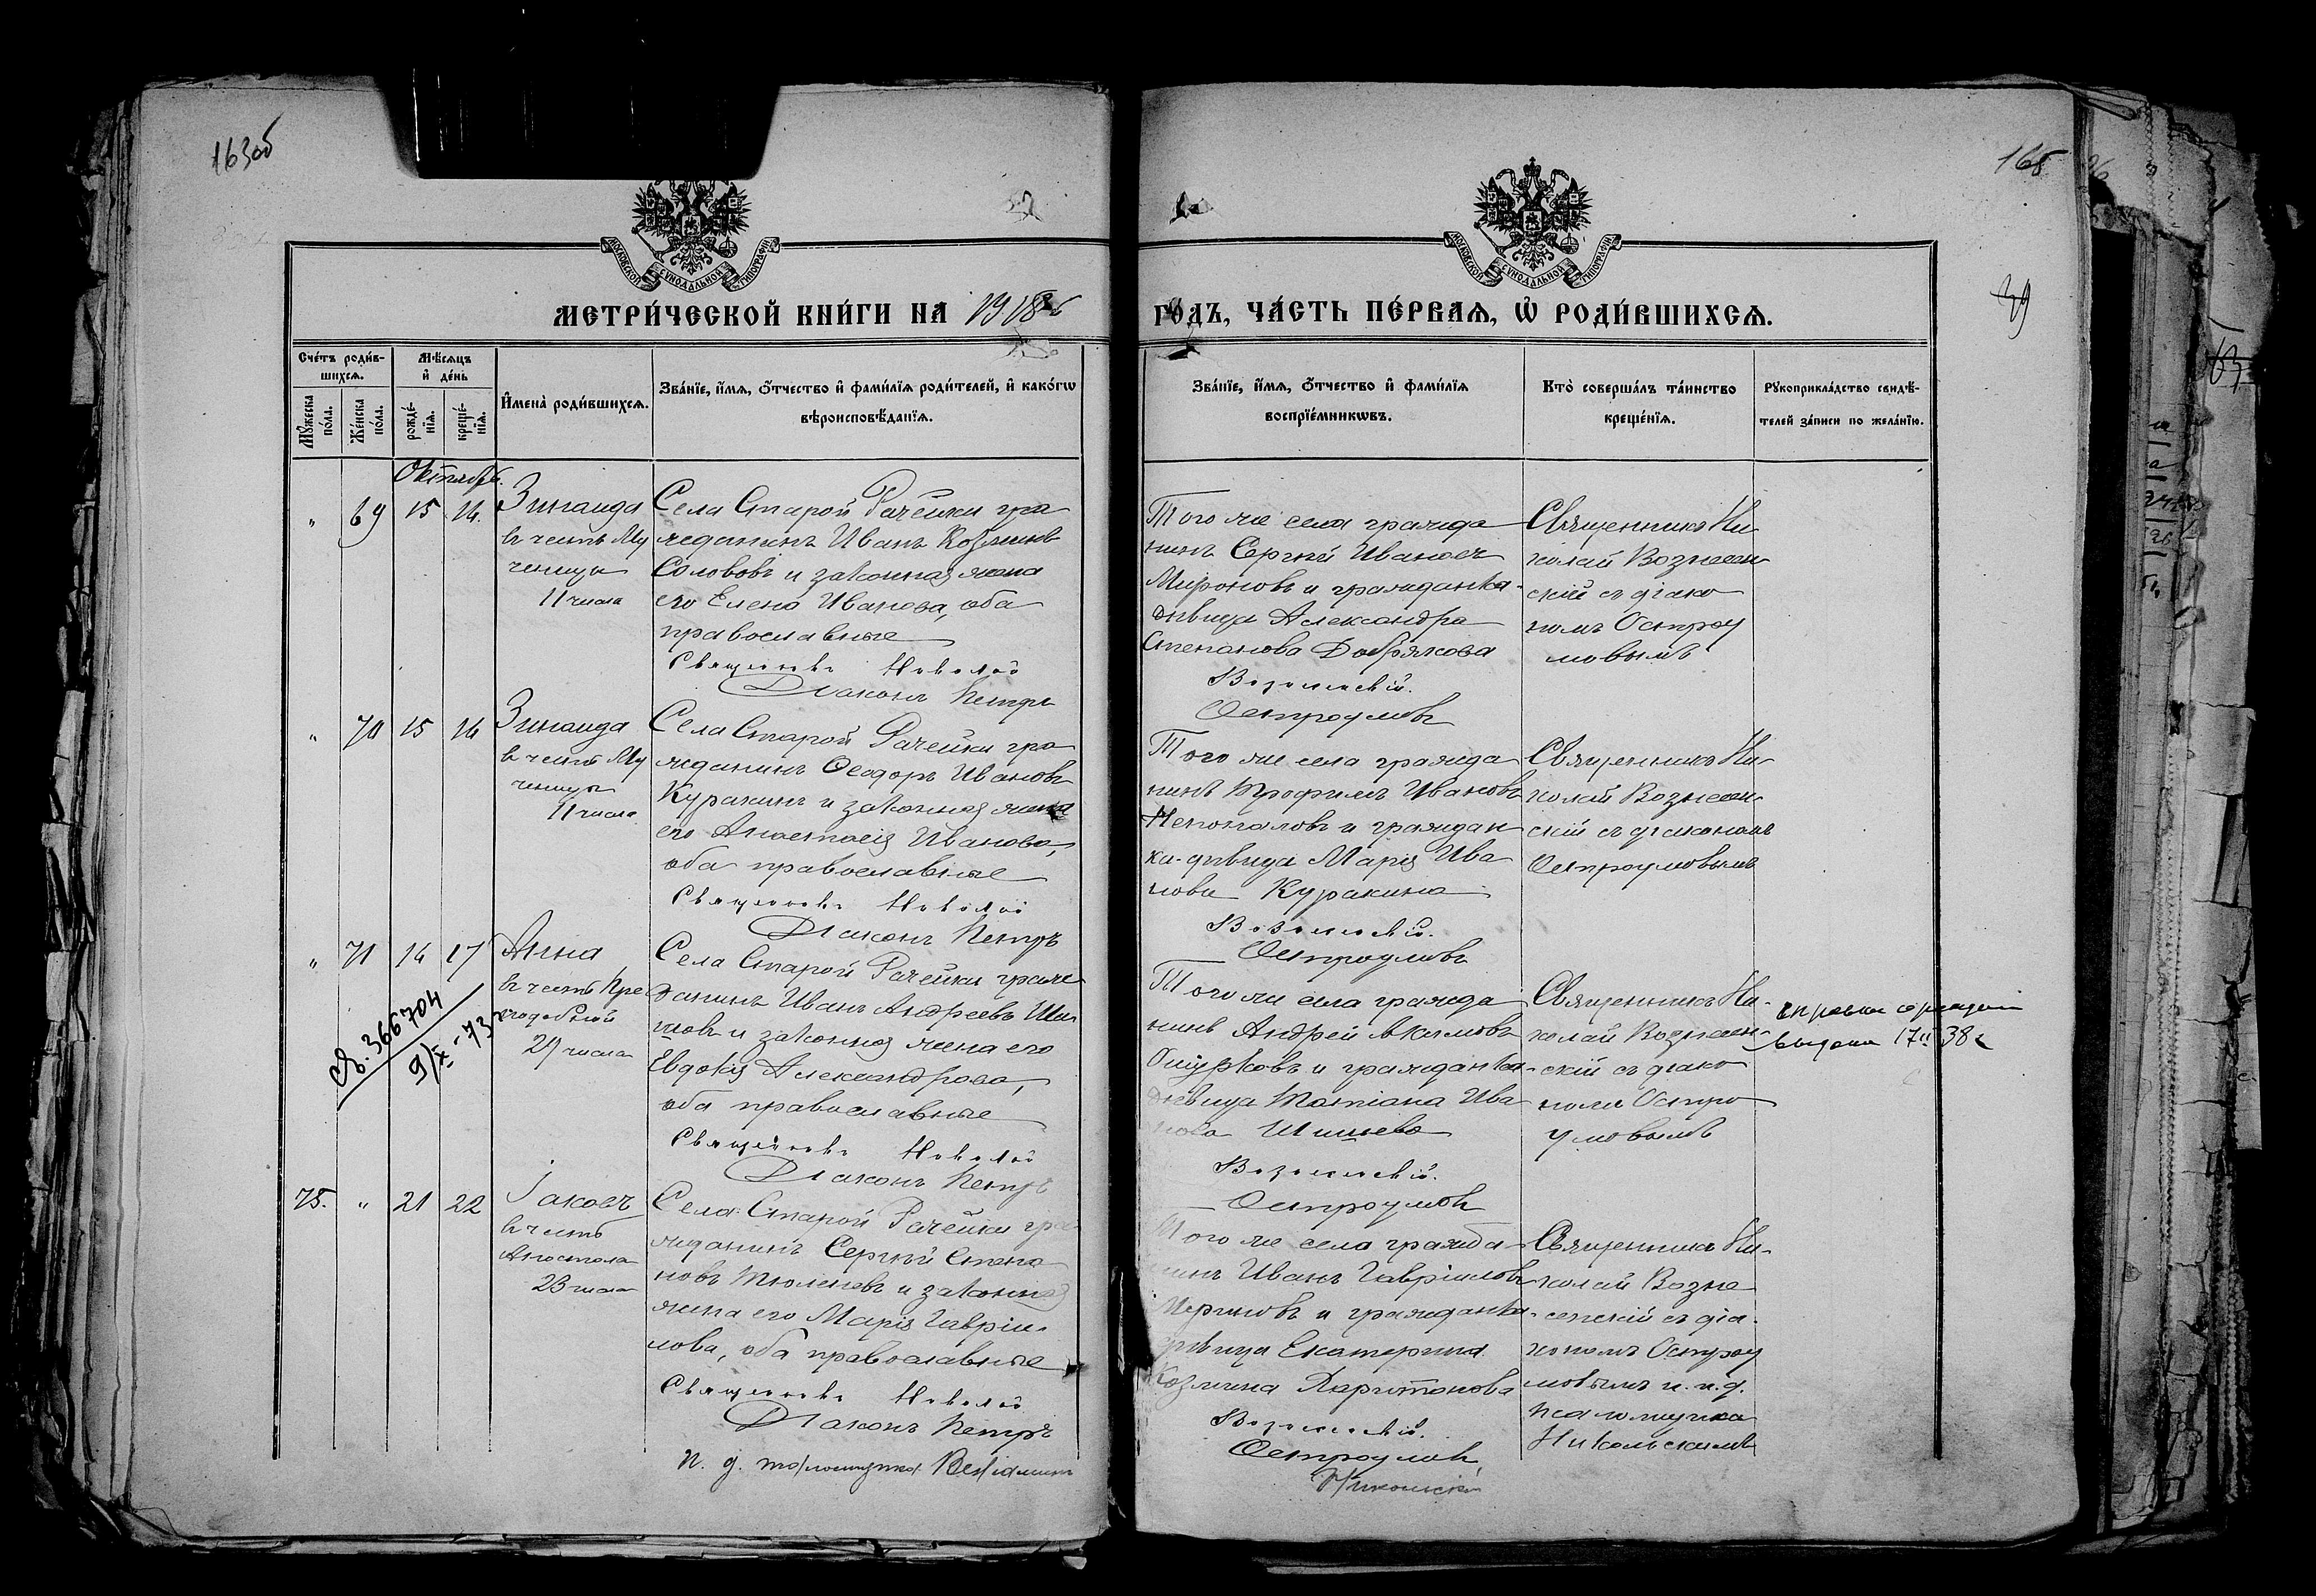 163об
165
39
63
МОСКОВСКОЙ СѴНОДАЛЬНОЙ ТИПОГРАФІИ
МОСКОВСКОЙ СѴНОДАЛЬНОЙ ТИПОГРАФІИ
МЕТРИ́ЧЕСКОЙ КНИ́ГИ НА 1918 ГО́ДЪ, ЧА́СТЬ ПЕ́РВАѦ, Ѽ РОДИ́ВШИХСѦ.
Счетъ родившихсѧ.
Мужеска пола.
Женска пола.
Мѣсѧцъ и день
рожденїѧ.
крещенїѧ.
Имена родившихсѧ.
Званїе, имѧ, отчество и фамилїѧ родителей, и какогѡ
вѣроисповѣданїѧ.
Званїе, имѧ, отчество и фамилїѧ
воспрїемникѡвъ.
Кто совершалъ таинство
крещенїѧ.
Рукоприкладство свидѣ-
телей записи по желанїю.
Октябрь.
" 69 15 16.
Зинаида
въ честь Му
ченицы
11 числа
Села Старой Рачейки гра
жданинъ Иванъ Козминъ
Солововъ и законная жена
его Елена Иванова, оба
православные
Священникъ Николай
Діаконъ Петръ
Того же села гражда
нинъ Сергій Ивановъ
Мироновъ и гражданка-
дѣвица Александра
Степанова Добрякова
Вознесенскій.
Остроумовъ
Священникъ Ни-
колай Вознесен-
скій съ діако
номъ Остроу
мовымъ
" 70 15 16
Зинаида
въ честь Му
ченицы
11 числа
Села Старой Рачейки гра
жданинъ Ѳеодоръ Ивановъ
Куракинъ и законная жена
его Анастасія Иванова,
оба православные
Священникъ Николай
Діаконъ Петръ
Того же села гражда
нинъ Трофимъ Ивановъ
и граждан
ка-дѣвица Марія Ива
нова Куракина
Вознесенскій.
Остроумовъ
Священникъ Ни-
колай Вознесен-
скій съ діакономъ
Остроумовымъ
" 71 16 17
Анна
въ честь Пре
подобной
29 числа
св. 366704
9/X-73
Села Старой Рачейки граж
данинъ Иванъ Андреевъ Ши
шовъ и законная жена его
Евдокія Александрова,
оба православные
Священникъ Николай
Діаконъ Петръ
Того же села гражда
нинъ Андрей Акимовъ
Ошурковъ и гражданка-
дѣвица Татіана Ива
нова
Вознесенскій.
Остроумовъ
Священникъ Ни-
колай Вознесен-
скій съ діако
номъ Остро
умовымъ
справка о рождении
выдана 17 II 38 г
75. " 21 22
Іаковъ
въ честь
Апостола
23 числа
Села Старой Рачейки гра-
жданинъ Сергій Степа
новъ Тюленевъ и законная
жена его Марія Гавріи-
лова, оба православные
Священникъ Николай
Діаконъ Петръ
и. д. псаломщика Веніаминъ
Того же села гражда-
нинъ Иванъ Гавріиловъ
и гражданка-
дѣвица Екатерина
Козмина Харитонова
Вознесенскій.
Остроумовъ
Никольскій
Священникъ Ни-
колай Возне
сенскій съ діа-
кономъ Остроу
мовымъ и и. д.
псаломщика
Никольскимъ